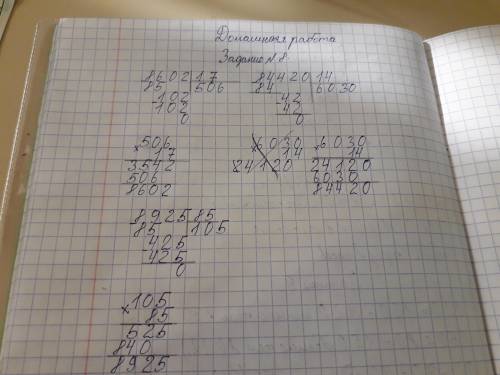 Домашняя работа
Задание № 8.
8602 17 84420 14
85 506 84 6030
-102 -42
102 42
0 0
506 6030 6030
× 17 14 × 14
3542 24120 24120
506 6030
8602 84420
8925 85
85 105
-425
425
0
105
× 85
525
840
8925